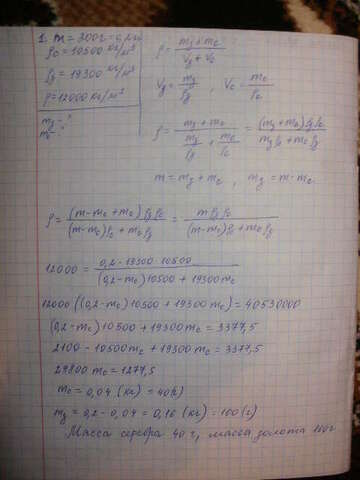 1. m = 200г = 0,2кг
ρc = 10500 кг/м³
ρз = 19300 кг/м³
ρ = 12000 кг/м³
mз - ?
mc - ?
ρ = (mз + mc) / (Vз + Vc)
Vз = mз/ρз , Vc = mc/ρc
ρ = (mз + mc) / (mз/ρз + mc/ρc) = (mз + mc) ρз ρc / (mз ρc + mc ρз)
m = mз + mc , mз = m - mc
ρ = (m - mc + mc) ρз ρc / ((m - mc) ρc + mc ρз) = m ρз ρc / ((m - mc) ρc + mc ρз)
12000 = 0,2 · 19300 · 10500 / ((0,2 - mc) 10500 + 19300 mc)
12000 ((0,2 - mc) 10500 + 19300 mc) = 40530000
(0,2 - mc) 10500 + 19300 mc = 3377,5
2100 - 10500 mc + 19300 mc = 3377,5
29800 mc = 1277,5
mc = 0,04 (кг) = 40(г)
mз = 0,2 - 0,04 = 0,16 (кг) = 160 (г)
Масса серебра 40 г, масса золота 160г